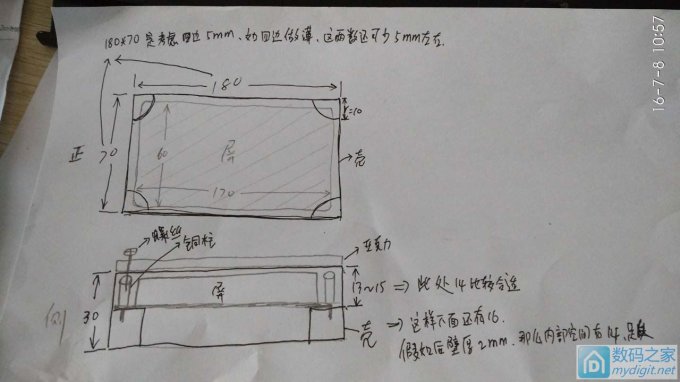 180×70 是考虑四边5mm、如四边做薄、这两数还可少5mm左右.
16-7-8 10:57
180
r=10
正
70
60
屏
壳
170
螺丝
铜柱
亚克力
侧
30
屏
13~15 ⇒ 此处14比较合适
壳
⇒ 这样下面还有16.
假如后壁厚2mm. 那么内部空间有14.
数码之家
mydigit.net